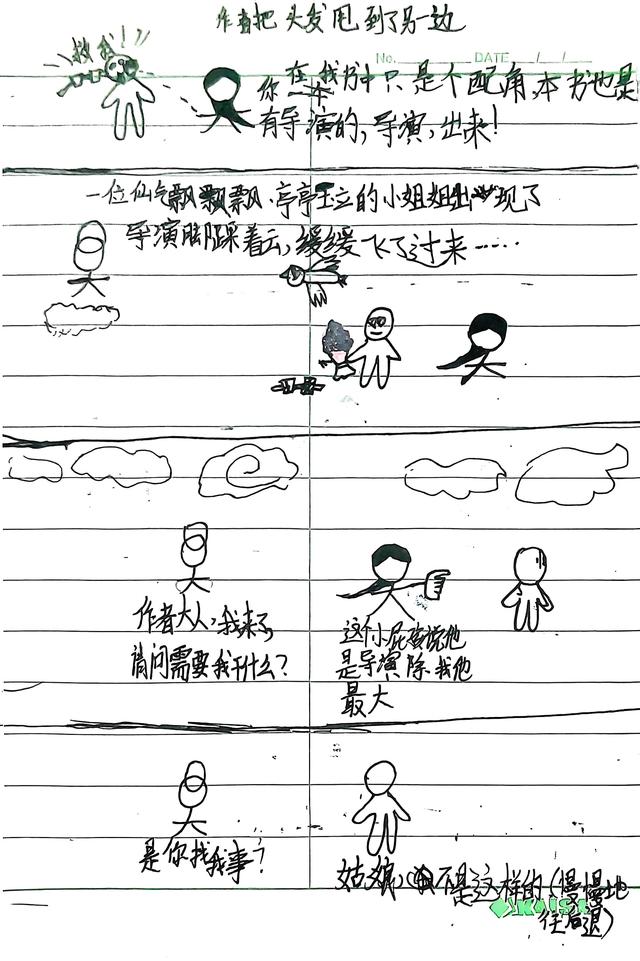 作者把头发甩到了另一边
救我!!
No. DATE / /
你在我书中只是个配角,本书也是
有导演的,导演,出来!
一位仙气飘飘飘、亭亭玉立的小姐姐出现了
导演脚踩着云,缓缓飞了过来……
作者大人,我来了,
请问需要我干什么?
这个小屁孩说他
是导演除我他
最大
是你找我事?
姑娘,不是这样的(慢慢地
往后退)